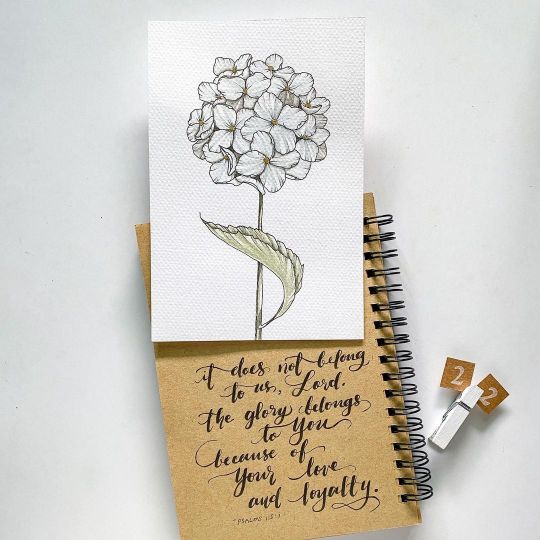 it does not belong
to us, Lord.
the glory belongs
to You
because of
Your love
and loyalty.
PSALMS 115:1
2 2